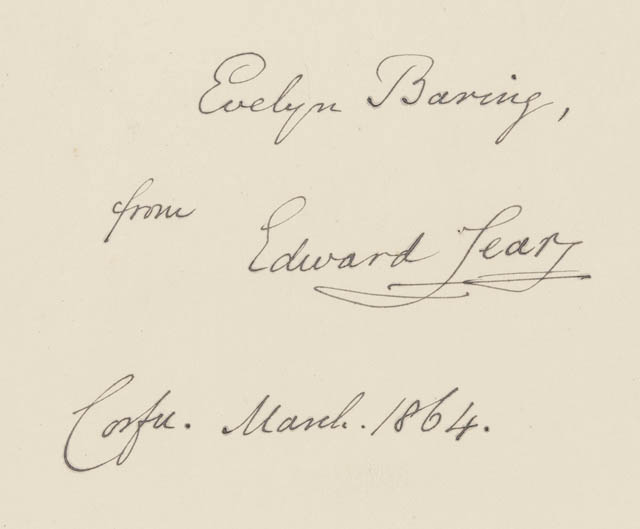 Evelyn Baring,
from Edward Lear
Corfu. March. 1864.